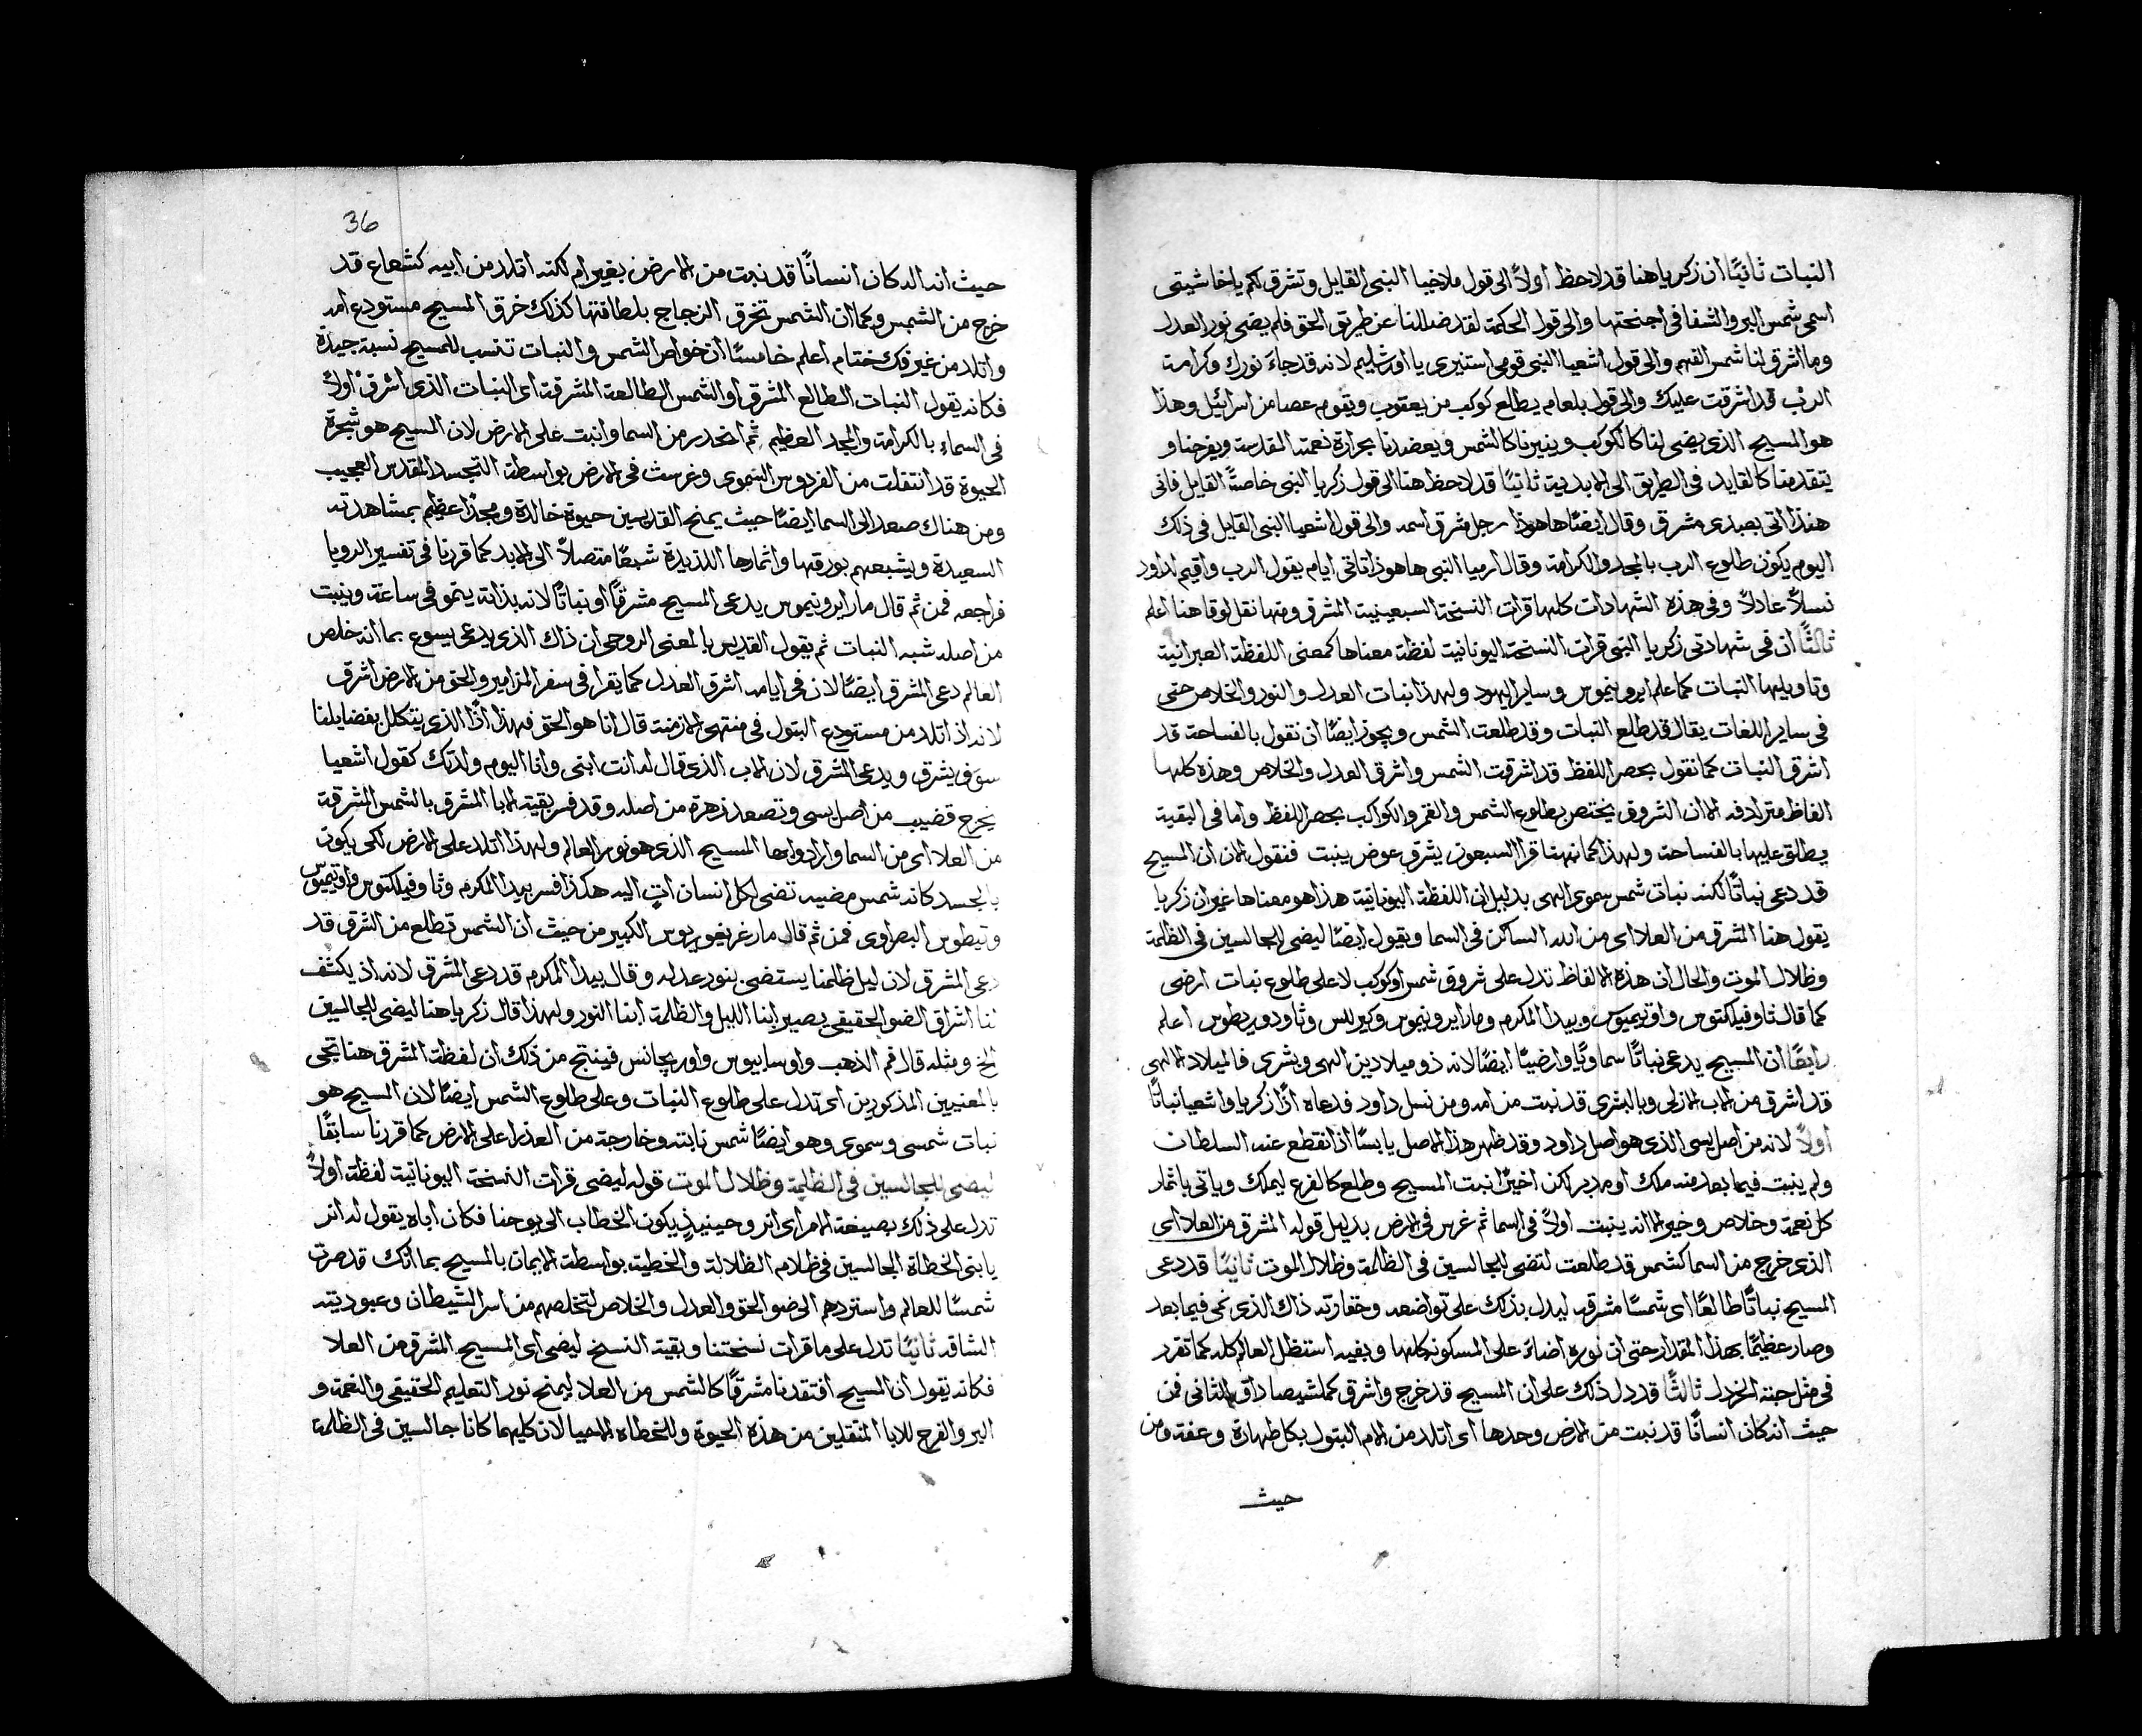 النبات ثانيًا ان زكريا هنا قد لاحظ اولاً الى قول ملاخيا النبي القايل وتشرق لكم ياخاشيتى
اسمى شمس البر والشفا فى اجنحتها والى قول الحكمة لقد ضللنا عن طريق الحق فلم يضى نور العدل
وما اشرق لنا شمس الفهم والى قول اشعيا النبى قومى استنيرى يا اورشليم لانه قد جاءَ نورك وكرامة
الرب قد اشرقت عليك والى قول بلعام يطلع كوكب من يعقوب ويقوم عصا من اسرائيل وهذا
هو المسيح الذى يضى لنا كالكوكب وينيرنا كالشمس ويعضدنا بحرارة نعمته المقدسة ويفرحنا و
يتقدمنا كالقايد فى الطريق الى الابدية ثانيًا قد لاحظ هنا الى قول زكريا النبى خاصةً القايل فانى
هنذا اتى بعبدى مشرق وقال ايضًا هاهوذا رجل مشرق اسمه والى قول اشعيا النبى القايل فى ذلك
اليوم يكون طلوع الرب بالمجد والكرامة وقال ارميا النبى ها هوذا تاتى ايام يقول الرب واقيم لداود
نسلاً عادلاً وفى هذه الشهادات كلها قرات النسخة السبعينية المشرق ومنها نقل لوقا هنا اعلم
ثالثًا ان فى شهادتى زكريا النبى قرات النسخة اليونانية لفظة معناها كمعنى اللفظة العبرانية
وتاويلها النبات كما علم ايرونيموس وساير اليهود ولهذا نبات العدل والنور والخلاص حتى
فى ساير اللغات يقال قد طلع النبات وقد طلعت الشمس ويجوز ايضًا ان نقول بالفساحة قد
اشرق النبات كما نقول بحصر اللفظ قد اشرقت الشمس واشرق العدل والخلاص وهذه كلها
الفاظ مترادفه الا ان الشروق يختص بطلوع الشمس والقمر والكواكب بحصر اللفظ واما فى البقية
يطلق عليها بالفساحة ولهذا كما نبهنا قرا السبعون يشرق عوض ينبت فنقول الان ان المسيح
قد دعى نباتًا لكنه نبات شمس سموى الهى بدليل ان اللفظة اليونانية هذا هو معناها غير ان زكريا
يقول هنا المشرق من العلا اى من الله الساكن فى السما ويقول ايضًا ليضى للجالسين فى الظلمة
وظلال الموت والحال ان هذه الالفاظ تدل على شروق شمس او كوكب لا على طلوع نبات ارضى
كما قال ثاوفيلكتوس واوتيميوس وبيدا المكرم ومار ايرونيموس وكيرللس وثاودوريطوس اعلم
رابعًا ان المسيح يدعى نباتًا سماويًا وارضيًا ايضًا لانه ذو ميلادين الهى وبشرى فالميلاد الالهى
قد اشرق من الاب الازلى وبالبشرى قد نبت من امه ومن نسل داود فدعاه اذًا زكريا واشعيا نباتًا
اولاً لانه من اصل يسى الذى هو اصل داود وقد ظهر هذا الاصل يابسًا اذ انقطع عنه السلطان
ولم ينبت فيما بعد منه ملك او مدبر لكن اخيرًا نبت المسيح وطلع كالفرع ليملك وياتى باثمار
كل نعمة وخلاص وخير الا انه ينبت اولاً فى السما ثم غرس فى الارض بدليل قوله المشرق من العلا اى
الذى خرج من السما كشمس قد طلعت لتضى للجالسين فى الظلمة وظلال الموت ثانيًا قد دعى
المسيح نباتًا طالعًا اى شمسًا مشرقه ليدل بذلك على تواضعه وحقارته ذاك الذى نمى فيما بعد
وصار عظيمًا بهذا المقدار حتى ان نوره اضاءَ على المسكونه كلها وبفيه استظل العالم كله كما تقرر
فى مثل حبة الخردل ثالثًا قد دل ذلك على ان المسيح قد خرج واشرق الثانى فن
حيث انه كان انسانًا قد نبت من الارض وحدها اى اتلد من الام البتول بكل طهارة وعفة ومن
حيث
36
حيث انه اله كان انسانًا قد نبت من الارض بغير ام لكنه اتلد من ابيه كشعاع قد
خرج من الشمس وكما ان الشمس تخرق الزجاج بلطافتها كذلك خرق المسيح مستودع امه
واتلد من غير فك ختام اعلم خامسًا ان خواص الشمس والنبات تنسب للمسيح نسبة جيدة
فكانه يقول النبات الطالع المشرق او الشمس الطالعة المشرقة اى النبات الذى اشرق اولاً
فى السماءِ بالكرامة والمجد العظيم ثم انحدر من السما وانبت على الارض لان المسيح هو شجرة
الحيوة قد انتقلت من الفردوس السموى وغرست فى الارض بواسطة التجسد المقدس العجيب
ومن هناك صعد الى السما ايضًا حيث يمنح القديسين حيوة خالدة ومجدًا عظيم بمشاهدته
السعيدة ويشبعهم بورقها واثمارها اللذيذة شبعًا متصلاً الى الابد كما قررنا فى تفسير الرويا
فراجعه فمن ثم قال مار ايرونيموس يدعى المسيح مشرقًا او نباتًا لانه بذاته ينمو فى ساعة وينبت
من اصله شبه النبات ثم يقول القديس بالمعنى الروحى ان ذاك الذى يدعى يسوع بما انه خلص
العالم دعى المشرق ايضًا لان فى ايامه اشرق العدل كما يقرا فى سفر المزامير والحق من الارض اشرق
لانه اذ اتلد من مستودع البتول فى منتهى الازمنة قال انا هو الحق فهذا اذًا الذى يتكلل بفضايلنا
سوف يشرق ويدعى المشرق لان الاب الذى قال له انت ابنى وانا اليوم ولدتك كقول اشعيا
يخرج قضيب من اصل يسى وتصعد زهرة من اصله وقد فسر بقية الابا المشرق بالشمس المشرقة
من العلا اى من السما وارادوا بها المسيح الذى هو نور العالم ولهذا اتلد على الارض لكى يكون
بالجسد كانه شمس مضيه تضى لكل انسان اتٍ اليه هكذا فسر بيدا المكرم وثاوفيلكتوس واوتيميوس
وتيطوس البصراوى فمن ثم قال مار غريغوريوس الكبير من حيث ان الشمس تطلع من الشرق قد
دعى المشرق لان ليل ظلمنا يستضى بنور عدله وقال بيدا المكرم قد دعى المشرق لانه اذ يكشف
لنا اشراق الضو الحقيقى يصير ابنا الليل والظلمة ابنا النور ولهذا قال زكريا هنا ليضى للجالسين
الخ ومثله قال فم الذهب واوسابيوس واوريجانس فينتج من ذلك ان لفظة المشرق هنا تجى
بالمعنيين المذكورين اى تدل على طلوع النبات وعلى طلوع الشمس ايضًا لان المسيح هو
نبات شمسى وسموى وهو ايضًا شمس نابته وخارجة من العذرا على الارض كما قررنا سابقًا
ليضى للجالسين فى الظلمة وظلال الموت قوله ليضى قرات النسخة اليونانية لفظة اولاً
تدل على ذلك بصيغة الامر اى انر وحينيذٍ يكون الخطاب الى يوحنا فكان اباه يقول له انر
يا بنى الخطاة الجالسين فى ظلام الظلالة والخطية بواسطة الايمان بالمسيح بما انك قد صرت
شمسًا للعالم واستردهم الى ضو الحق والعدل والخلاص لتخلصهم من اسر الشيطان وعبوديته
الشاقه ثانيًا تدل على ما قرات نسختنا وبقية النسخ ليضى اى المسيح المشرق من العلا
فكانه يقول ان المسيح افتقدنا مشرقًا كالشمس من العلا ليمنح نور التعليم الحقيقى والنعمة و
البر والفرح للابا المنقلين من هذه الحيوة وللخطاه الاحيا لان كليهما كانا جالسين فى الظلمة